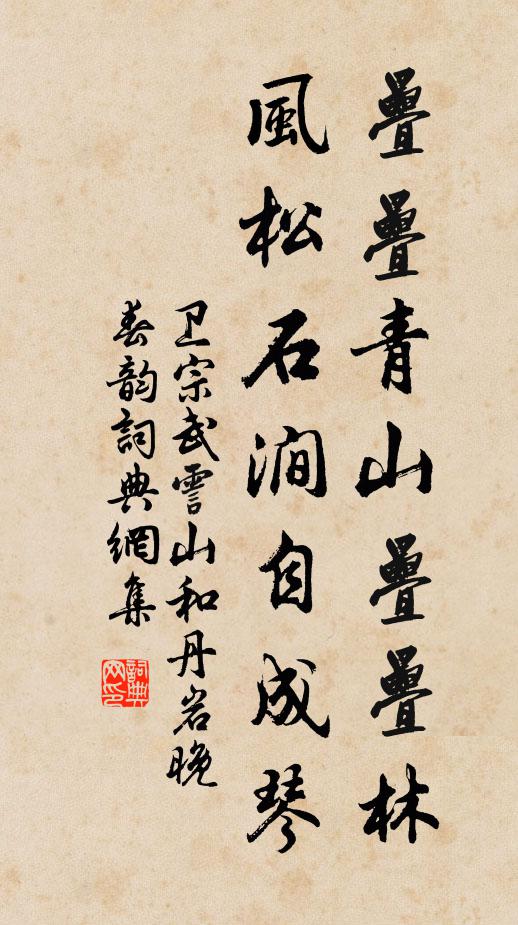 疊疊青山疊疊林
風松石澗自成琴
卫宗武雲山和丹岩晚
春韵詞典網集
詞典网印